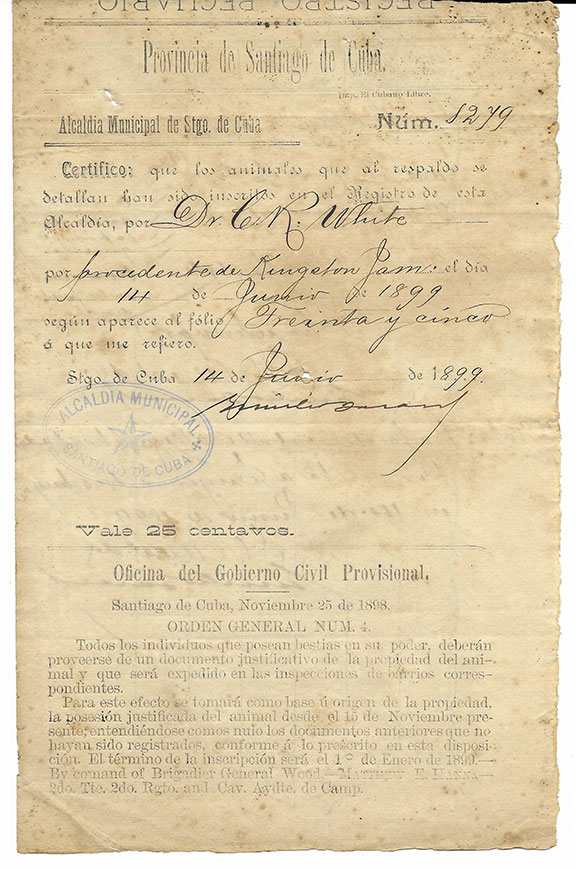 REGISTRO PECUARIO
Provincia de Santiago de Cuba.
Imp. El Cubano Libre.
Alcaldía Municipal de Stgo. de Cuba Núm. 8279
Certifico: que los animales que al respaldo se
detallan han sido inscritos en el Registro de esta
Alcaldía, por Dr. C. R. White
por procedente de Kingston Jam: el día
14 de Junio de 1899
según aparece al fólio Treinta y cinco
á que me refiero.
Stgo. de Cuba 14 de Junio de 1899.
ALCALDIA MUNICIPAL
SANTIAGO DE CUBA
Vale 25 centavos.
Oficina del Gobierno Civil Provisional.
Santiago de Cuba, Noviembre 25 de 1898.
ORDEN GENERAL NUM. 4.
Todos los individuos que posean bestias en su poder, deberán
proveerse de un documento justificativo de la propiedad del ani-
mal y que será expedido en las inspecciones de barrios corres-
pondientes.
Para este efecto se tomará como base ú origen de la propiedad,
la posesión justificada del animal desde el 15 de Noviembre pre-
sente; entendiéndose comos nulo los documentos anteriores que no
hayan sido registrados, conforme á lo prescrito en esta disposi-
ción. El término de la inscripción será el 1º de Enero de 1899.—
By comand of Brigadier General Wood.—MATTHEW E HANNA—
2do. Tte. 2do. Rgto. and Cav. Aydte. de Camp.